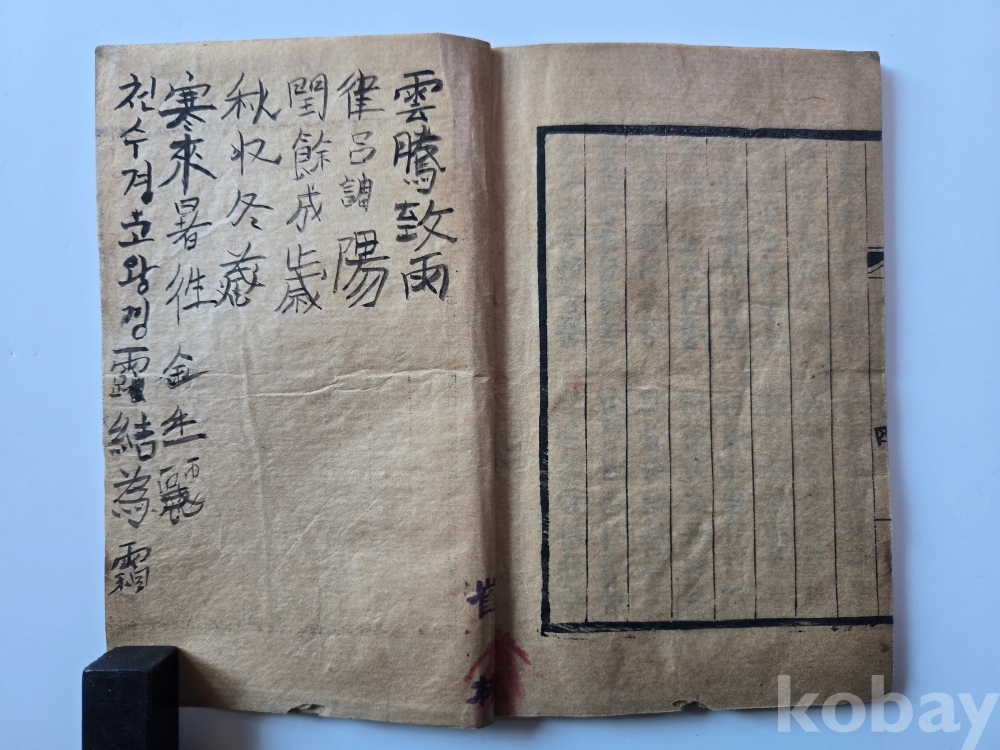 雲騰致雨
律呂調陽
閏餘成歲
秋収冬藏
寒來暑徃 金生麗
천수경초왕경露結為霜
kobay